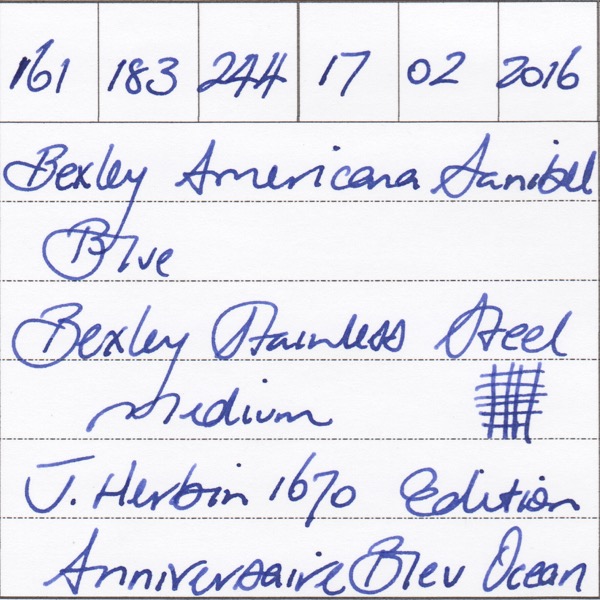 161 183 244 17 02 2016
Bexley Americana Sanibel
Blue
Bexley Stainless Steel
Medium
J. Herbin 1670 Edition
Anniversaire Bleu Ocean